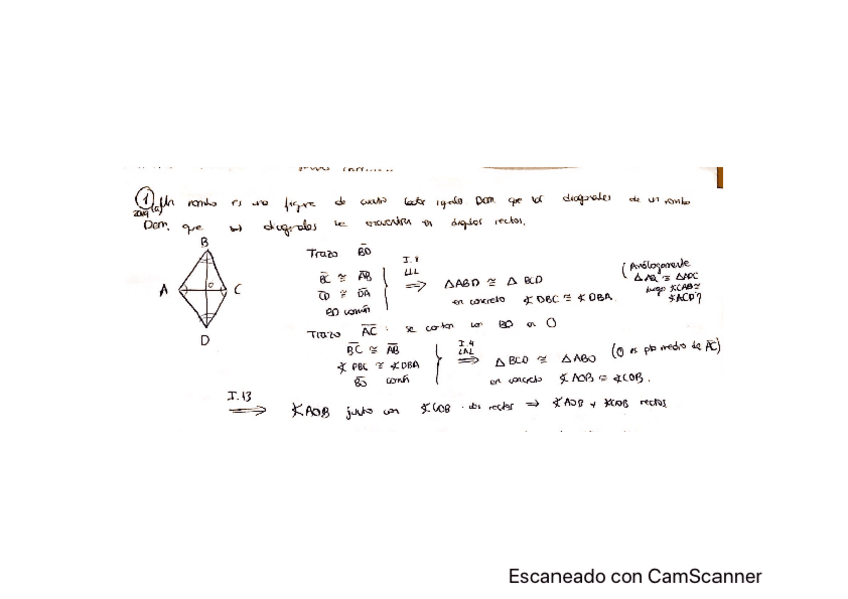 ① Un rombo es una figura de cuatro lados iguales Dem que las diagonales de un rombo
2019 (a)
Dem. que las diagonales se encuentran en ángulos rectos.
B
A
O
C
D
Trazo BD
BC ≅ AB
CD ≅ DA
BD común
I.8
LLL
⇒ △ABD ≅ △BCD
en concreto ∡DBC ≅ ∡DBA
(Análogamente
△ABC ≅ △ADC
luego ∡CAB ≅
∡ACD?
Trazo AC: se cortan con BD en O
BC ≅ AB
∡DBC ≅ ∡DBA
BO común
I.4
LAL
⇒ △BCO ≅ △ABO (O es pto medio de AC)
en concreto ∡AOB ≅ ∡COB.
I.13
⇒ ∡AOB junto con ∡COB dos rectos ⇒ ∡AOB y ∡COB rectos
Escaneado con CamScanner